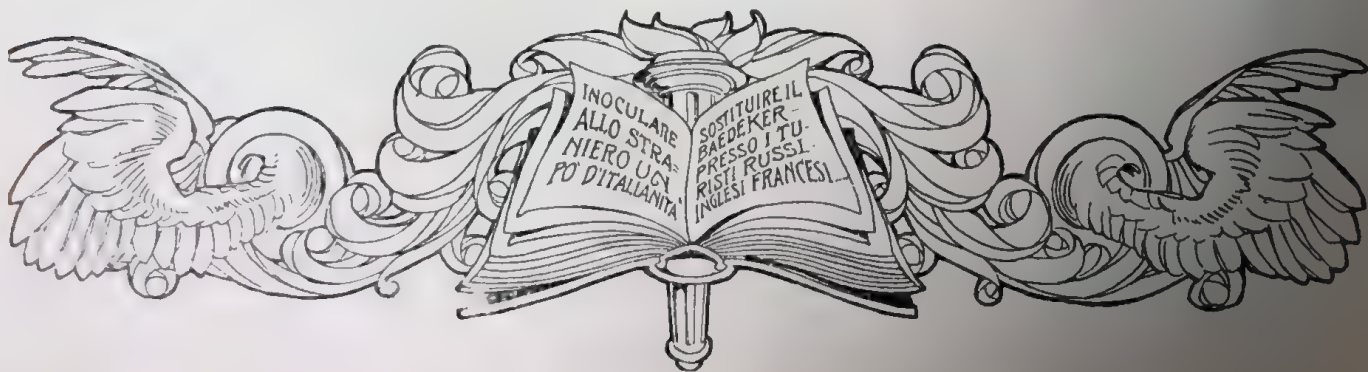 INOCULARE
ALLO STRA=
NIERO UN
PO' D'ITALIANITA'
SOSTITUIRE IL
BAEDEKER -
PRESSO I TU-
RISTI RUSSI.
INGLESI FRANCESI...